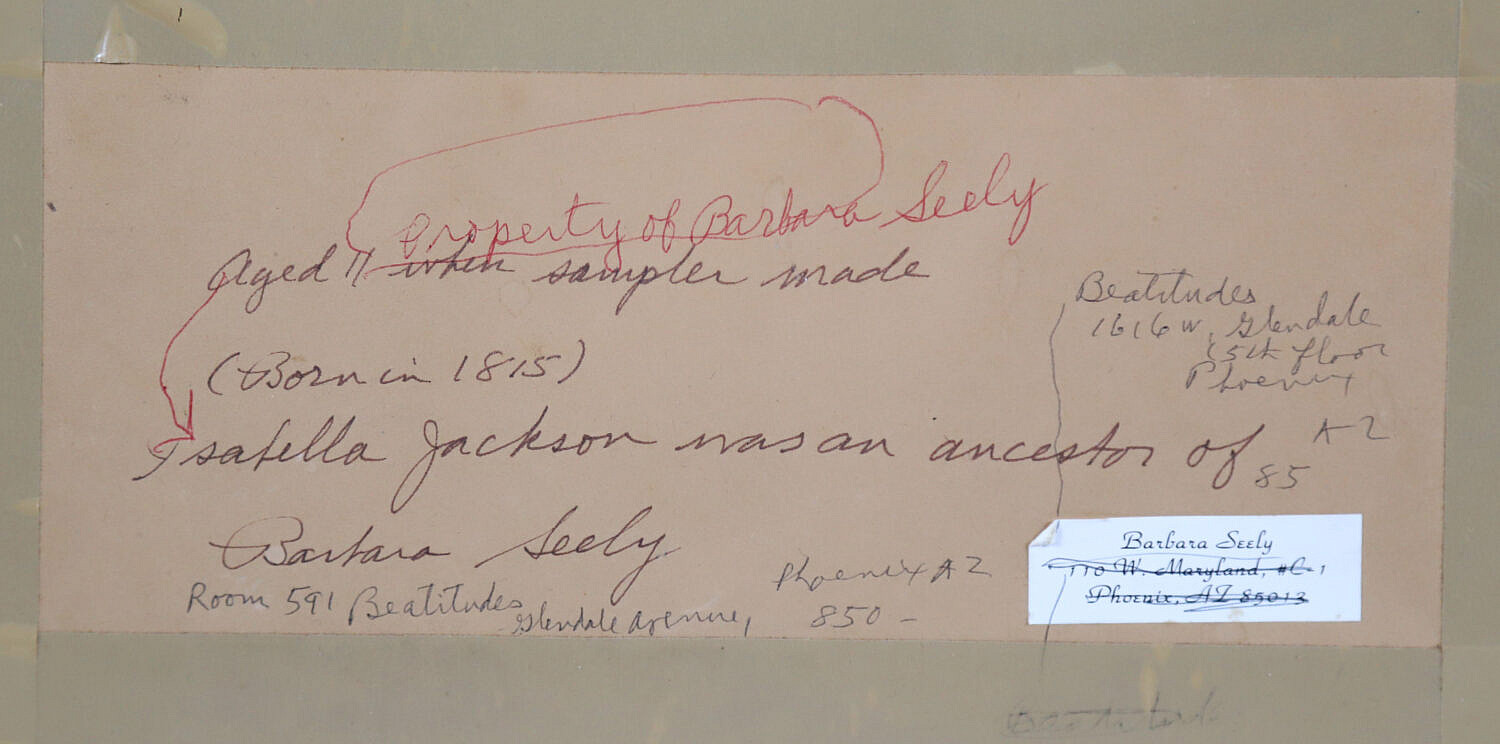 Property of Barbara Seely
Aged 11 when sampler made
(Born in 1815)
Isabella Jackson was an ancestor of
Barbara Seely
Room 591 Beatitudes
Glendale Avenue,
Phoenix AZ
850 -
Beatitudes
1616 W. Glendale
(5th floor
Phoenix
AZ
85
Barbara Seely
110 W. Maryland, #C-1
Phoenix, AZ 85013